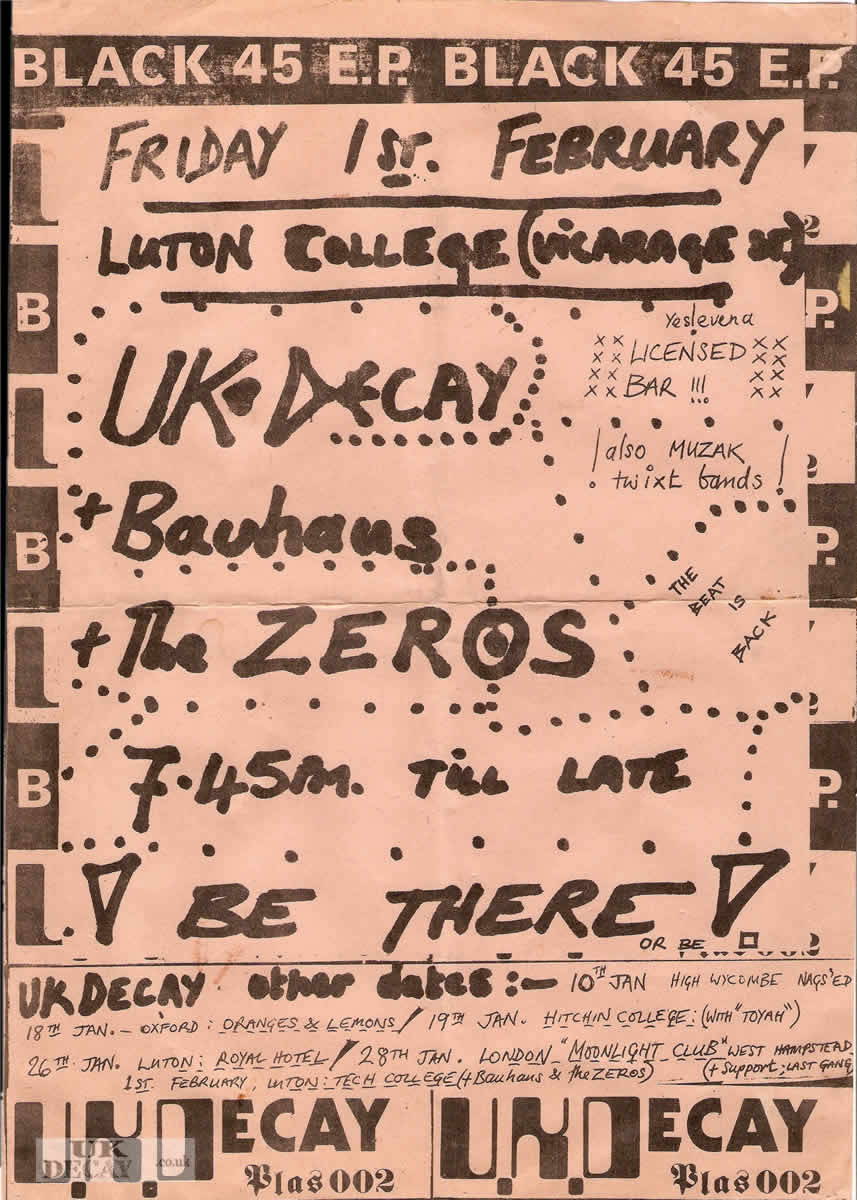 BLACK 45 E.P. BLACK 45 E.P.
FRIDAY 1st. FEBRUARY
LUTON COLLEGE (VICARAGE ST)
UK. DECAY
Yes! even a
xx LICENSED xx
xx BAR !!! xx
! also MUZAK !
twixt bands
+ Bauhaus
THE
BEAT
IS
BACK
+ The ZEROS
7.45pm. TILL LATE
! BE THERE !
OR BE □
UK DECAY other dates :- 10TH JAN HIGH WYCOMBE NAGS'ED
18TH JAN. - OXFORD : ORANGES & LEMONS / 19TH JAN. HITCHIN COLLEGE : (WITH "TOYAH")
26TH JAN. LUTON : ROYAL HOTEL / 28TH JAN. LONDON "MOONLIGHT CLUB" WEST HAMPSTEAD
1ST FEBRUARY, LUTON : TECH COLLEGE (+ Bauhaus & the ZEROS) (+ Support ; LAST GANG)
U.K.DECAY U.K.DECAY
Plas 002 Plas 002
UK DECAY .co.uk